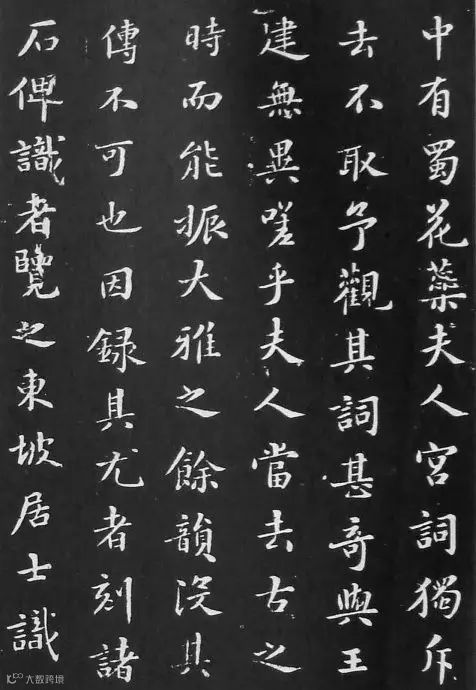 中有蜀花蘂夫人宮詞獨斥
去不取予觀其詞甚奇與王
建無異嗟乎夫人當去古之
時而能振大雅之餘韻沒其
傳不可也因録其尤者刻諸
石俾識者覽之東坡居士識
大数跨境